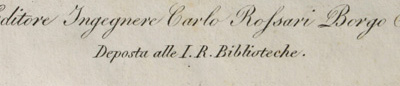 ditore Ingegnere Carlo Rossari Borgo
Deposta alle I. R. Biblioteche.